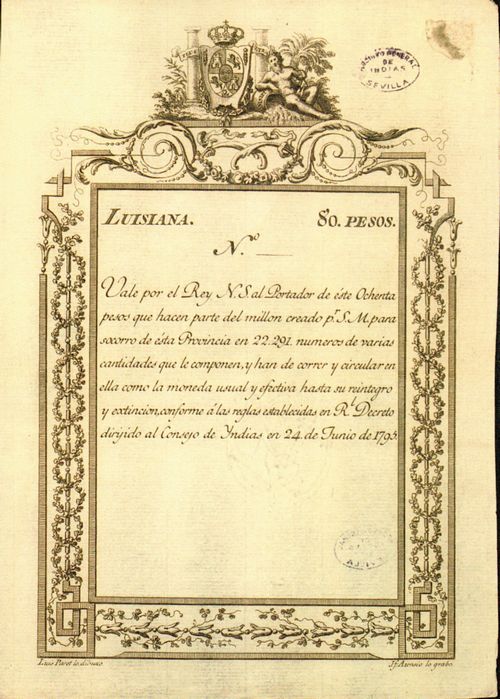 ARCHIVO GENERAL
DE
INDIAS
SEVILLA
LUISIANA. 80. PESOS.
N.º
Vale por el Rey N.S. al Portador de éste Ochenta
pesos que hacen parte del millon creado pr. S.M. para
socorro de esta Provincia en 22.291. numeros de varias
cantidades que le componen, y han de correr y circular en
ella como la moneda usual y efectiva hasta su reintegro
y extincion, conforme á las reglas establecidas en Rl. Decreto
dirijido al Consejo de Yndias en 24. de Junio de 1795.
Luis Paret lo dibuxo. Jf. Asensio lo grabo.